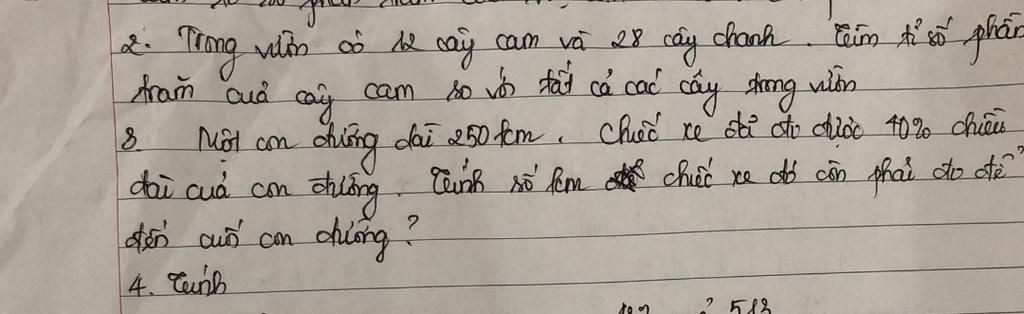 2. Trong vườn có 12 cây cam và 28 cây chanh. Tìm tỉ số phần
trăm của cây cam so với tất cả các cây trong vườn
3. Một con đường dài 250 km. Chiếc xe đã đi được 40% chiều
dài của con đường. Tính số km chiếc xe đó còn phải đi để
đến cuối con đường?
4. Tính
513